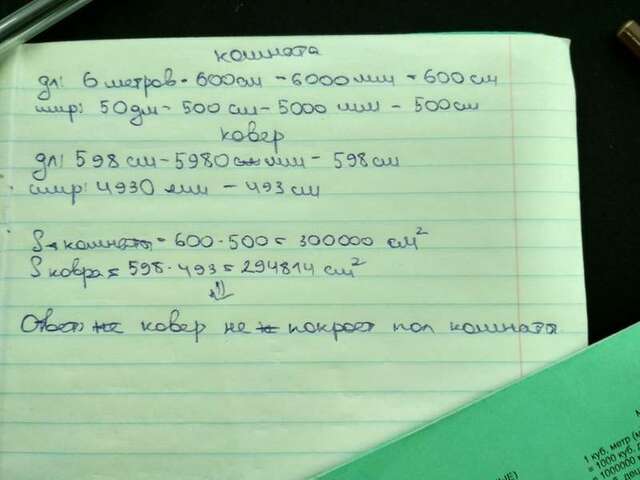 комната
дл: 6 метров - 600см - 6000 мм - 600 см
шир: 50дм - 500 см - 5000 мм - 500см
ковер
дл: 598 см - 5980 мм - 598 см
шир: 4930 мм - 493 см
S комнаты = 600 · 500 = 300000 см²
S ковра = 598 · 493 = 294814 см²
⇓
Ответ: ковер не покроет пол комнаты
1 куб. метр (м
= 1000 куб. д
= 1000000 к